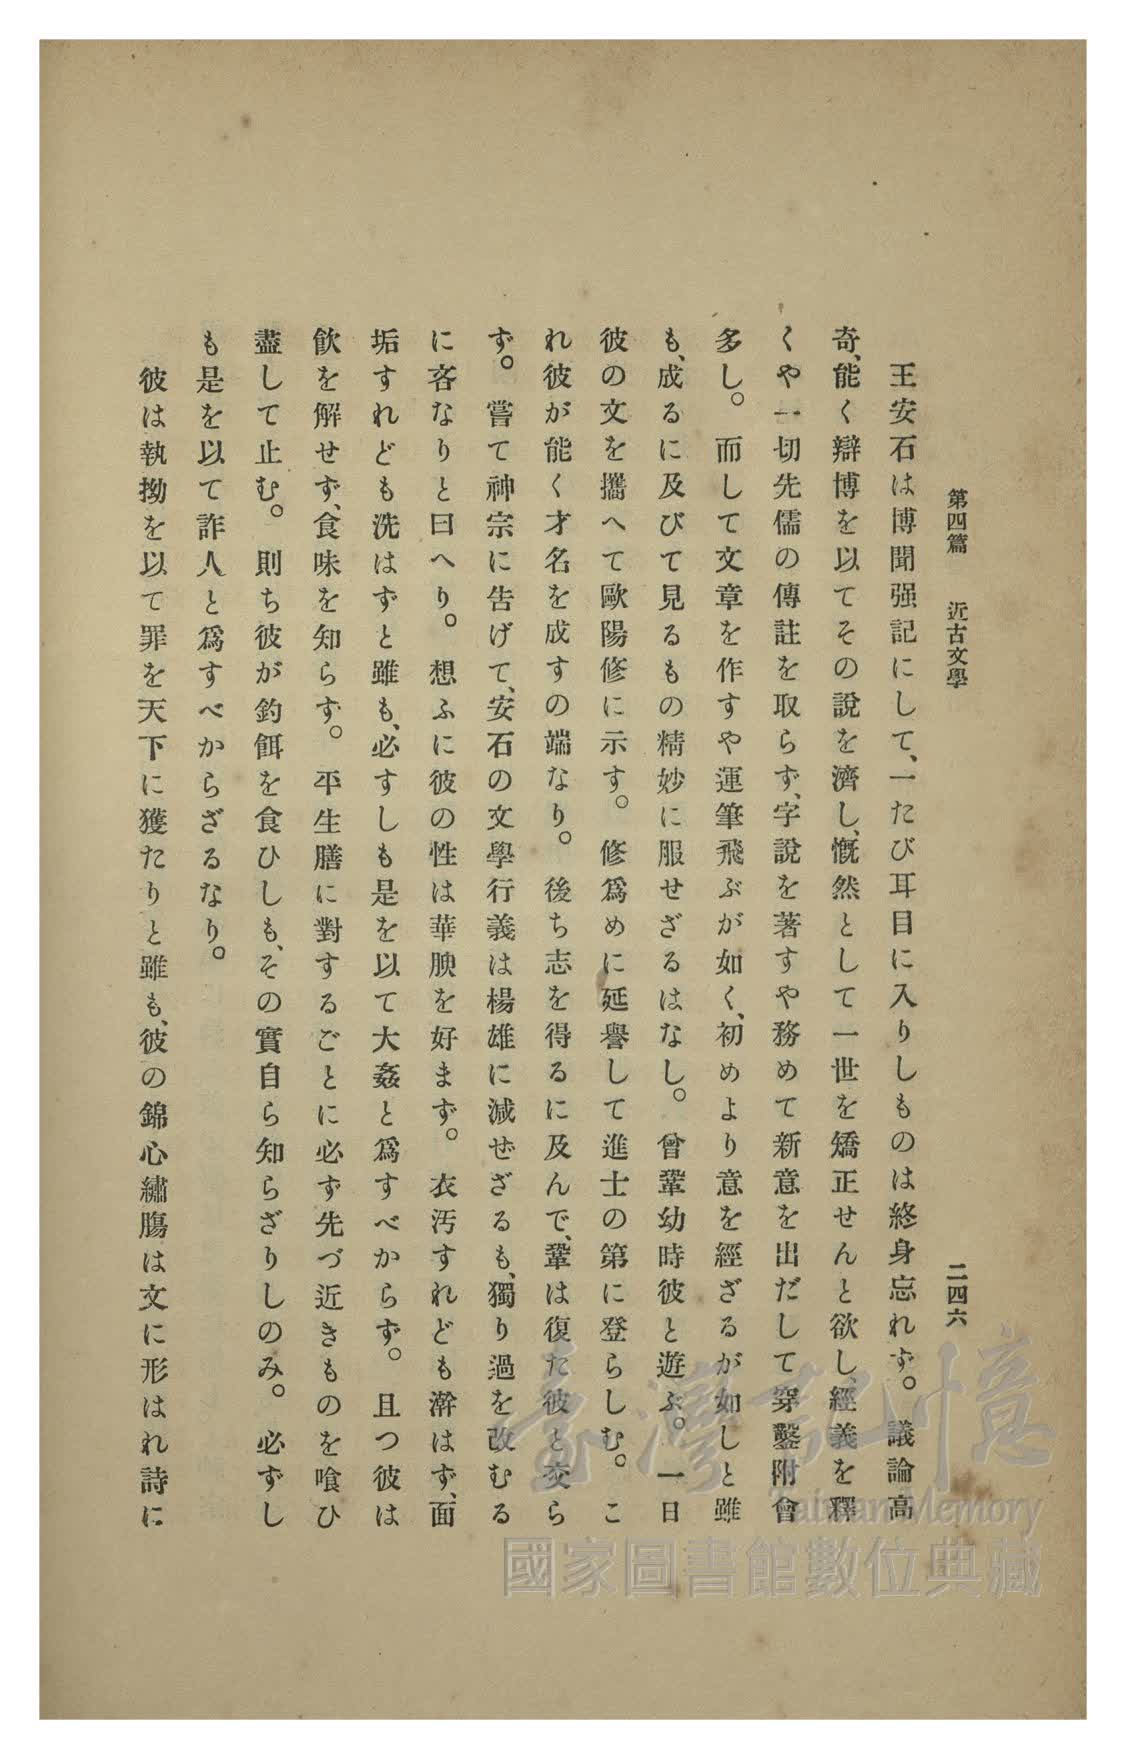 第四篇　近古文學　二四六
王安石は博聞强記にして、一たび耳目に入りしものは終身忘れず。議論高
奇、能く辯博を以てその說を濟し、慨然として一世を矯正せんと欲し、經義を釋
くや一切先儒の傳註を取らず、字說を著すや務めて新意を出だして穿鑿附會
多し。而して文章を作すや運筆飛ぶが如く、初めより意を經ざるが如しと雖
も、成るに及びて見るもの精妙に服せざるはなし。曾鞏幼時彼と遊ぶ。一日
彼の文を攜へて歐陽修に示す。修爲めに延譽して進士の第に登らしむ。こ
れ彼が能く才名を成すの端なり。後ち志を得るに及んで、鞏は復た彼と交ら
ず。嘗て神宗に告げて、安石の文學行義は楊雄に減ぜざるも、獨り過を改むる
に吝なりと曰へり。想ふに彼の性は華腴を好まず。衣汚すれども澣はず、面
垢すれども洗はずと雖も、必すしも是を以て大姦と爲すべからず。且つ彼は
飮を解せず、食味を知らず。平生膳に對するごとに必ず先づ近きものを喰ひ
盡して止む。則ち彼が釣餌を食ひしも、その實自ら知らざりしのみ。必ずし
も是を以て詐人と爲すべからざるなり。
彼は執拗を以て罪を天下に獲たりと雖も、彼の錦心繡膓は文に形はれ詩に
臺灣記憶
Taiwan Memory
國家圖書館數位典藏